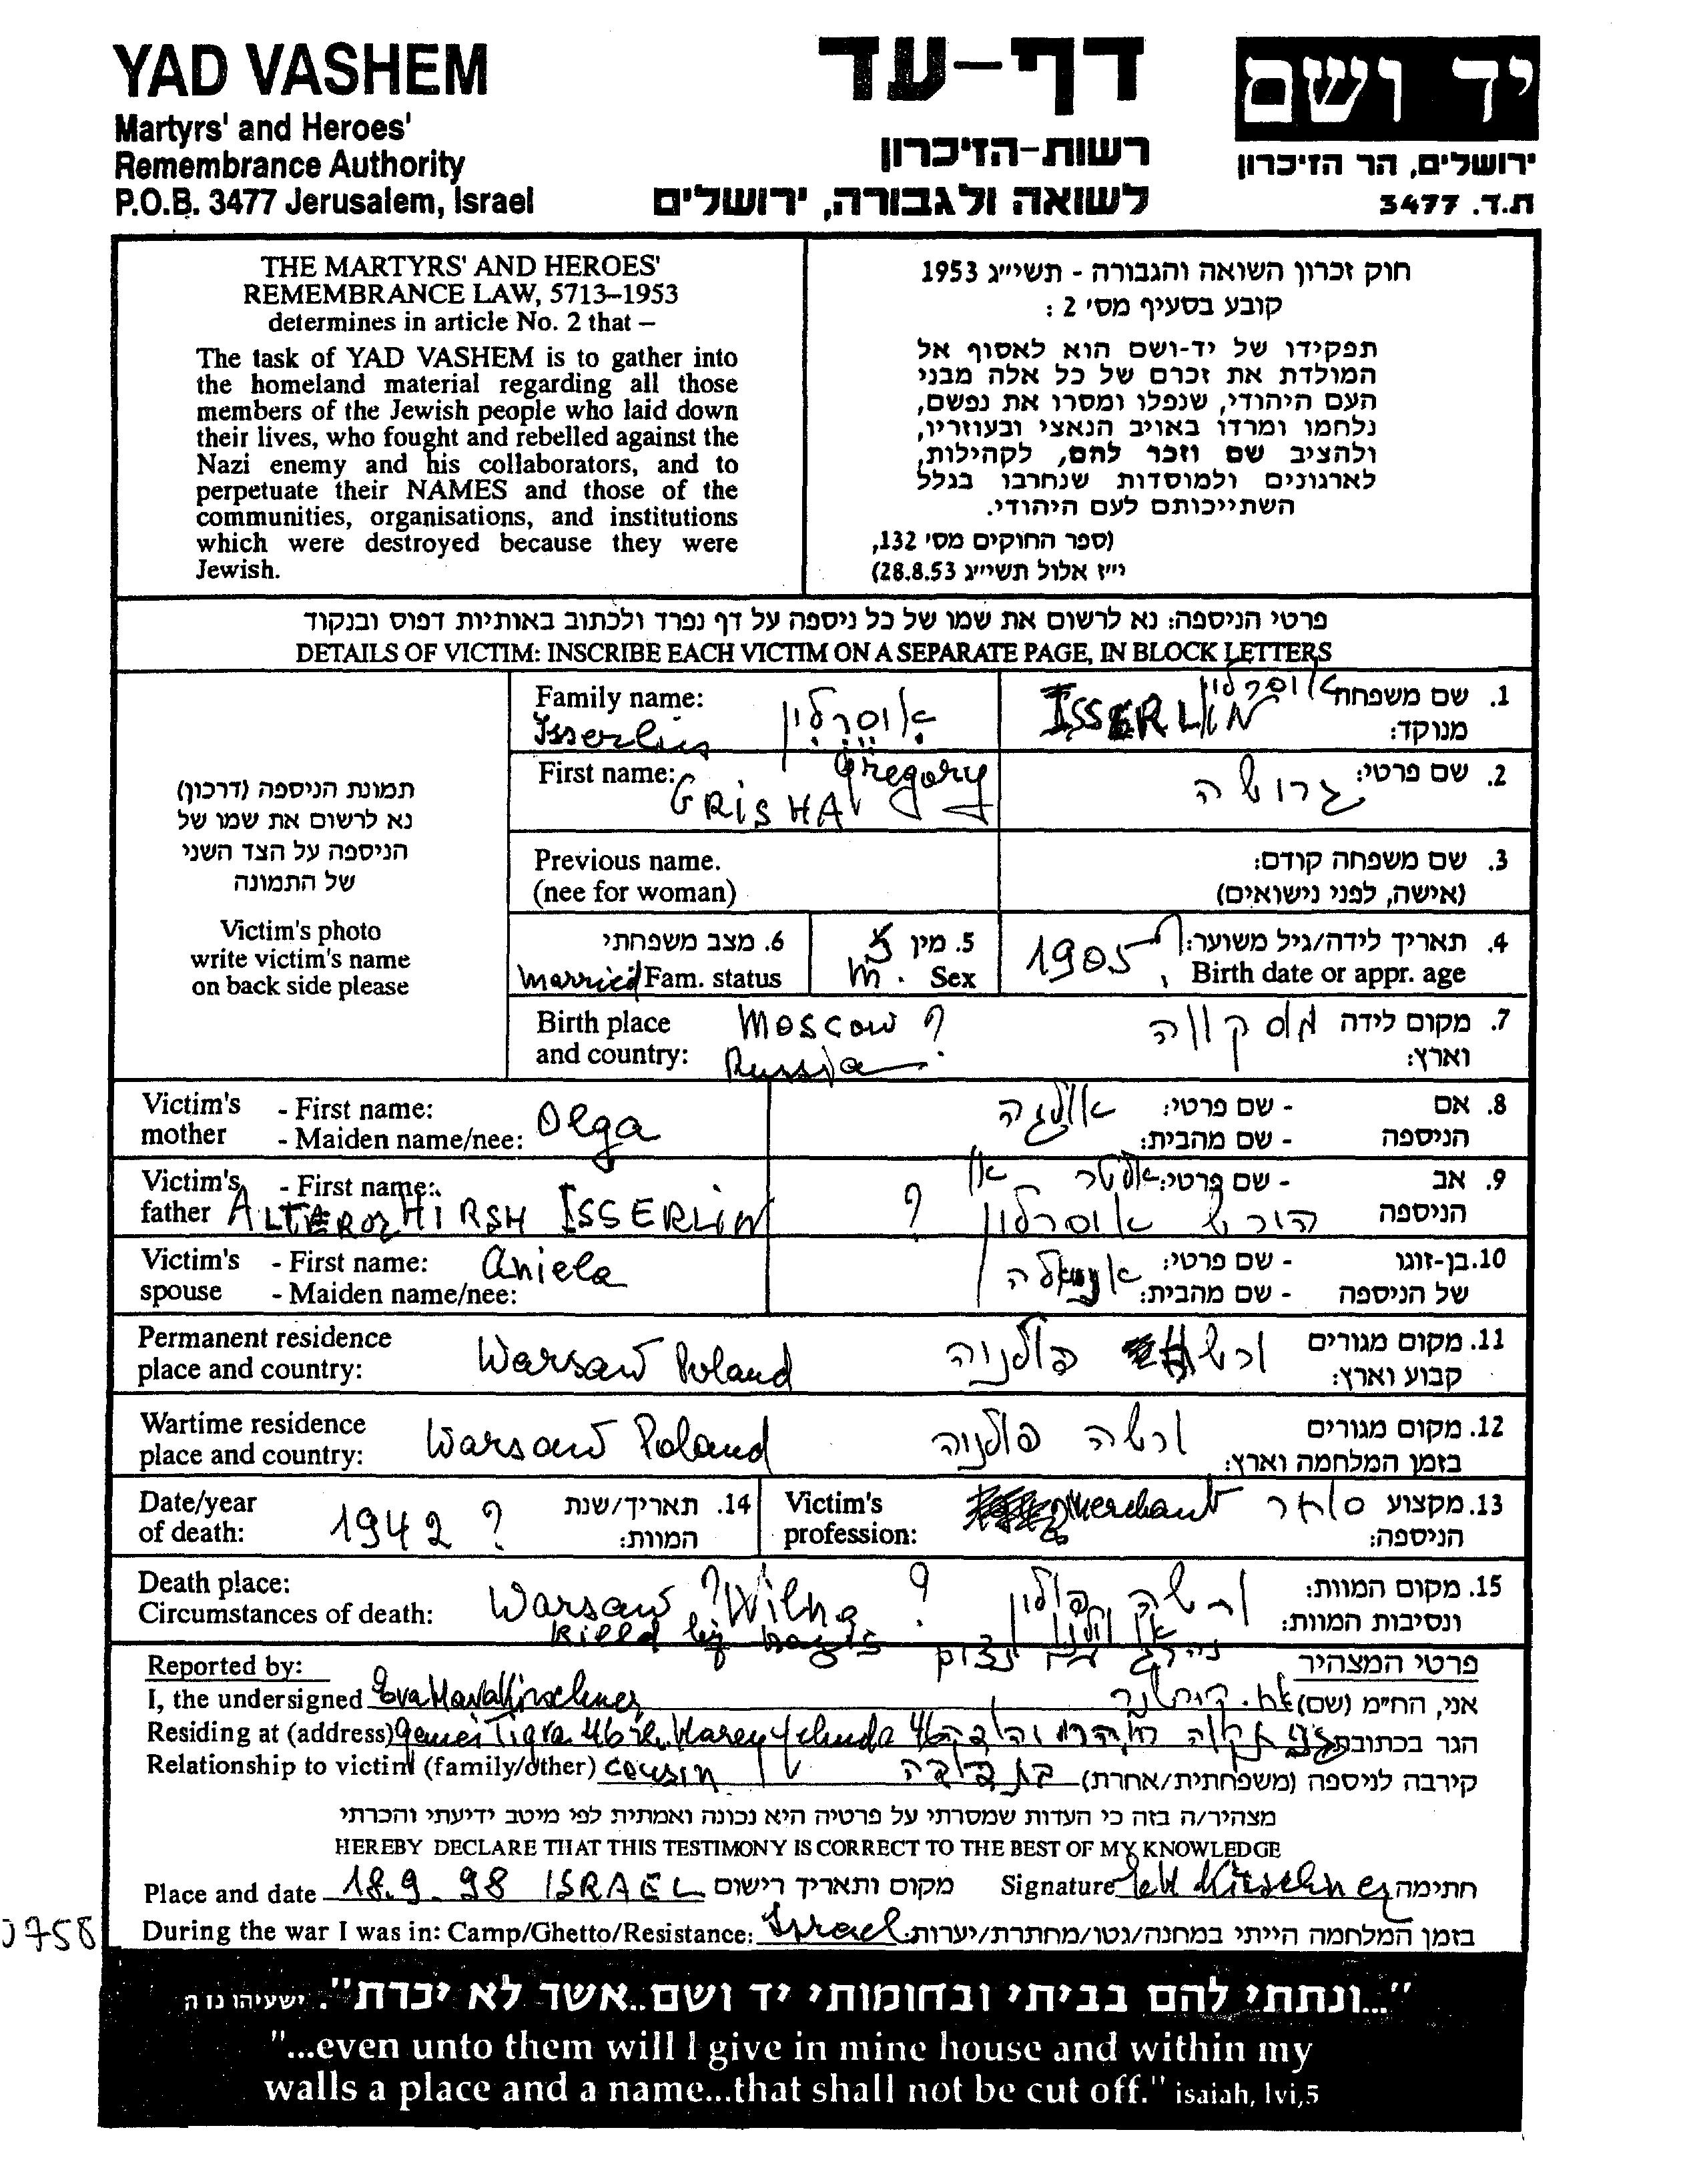 YAD VASHEM
Martyrs' and Heroes'
Remembrance Authority
P.O.B. 3477 Jerusalem, Israel
דף-עד
רשות-הזיכרון
לשואה ולגבורה, ירושלים
יד ושם
ירושלים, הר הזיכרון
ת.ד. 3477
THE MARTYRS' AND HEROES'
REMEMBRANCE LAW, 5713–1953
determines in article No. 2 that –
The task of YAD VASHEM is to gather into
the homeland material regarding all those
members of the Jewish people who laid down
their lives, who fought and rebelled against the
Nazi enemy and his collaborators, and to
perpetuate their NAMES and those of the
communities, organisations, and institutions
which were destroyed because they were
Jewish.
חוק זכרון השואה והגבורה - תשי״ג 1953
קובע בסעיף מס׳ 2 :
תפקידו של יד-ושם הוא לאסוף אל
המולדת את זכרם של כל אלה מבני
העם היהודי, שנפלו ומסרו את נפשם,
נלחמו ומרדו באויב הנאצי ובעוזריו,
ולהציב שם וזכר להם, לקהילות,
לארגונים ולמוסדות שנחרבו בגלל
השתייכותם לעם היהודי.
(ספר החוקים מס׳ 132,
י״ז אלול תשי״ג 28.8.53)
פרטי הניספה: נא לרשום את שמו של כל ניספה על דף נפרד ולכתוב באותיות דפוס ובנקוד
DETAILS OF VICTIM: INSCRIBE EACH VICTIM ON A SEPARATE PAGE, IN BLOCK LETTERS
תמונת הניספה (דרכון)
נא לרשום את שמו של
הניספה על הצד השני
של התמונה
Victim's photo
write victim's name
on back side please
Family name: איסרלין ISSERLIN איסרלין 1. שם משפחה
Isserlin מנוקד:
First name: GRISHA Gregory גרישה 2. שם פרטי:
Previous name. 3. שם משפחה קודם:
(nee for woman) (אישה, לפני נישואים)
6. מצב משפחתי 5. מין 1905 ? 4. תאריך לידה/גיל משוער:
married Fam. status m. Sex Birth date or appr. age
Birth place Moscow ? מוסקווה 7. מקום לידה
and country: Russia וארץ:
Victim's - First name: Olga אולגה - שם פרטי: 8. אם
mother - Maiden name/nee: - שם מהבית: הניספה
Victim's - First name: או אלטר - שם פרטי: 9. אב
father ALTER or HIRSH ISSERLIN ? הירש איסרלין הניספה
Victim's - First name: Aniela אניאלה - שם פרטי: 10. בן-זוגו
spouse - Maiden name/nee: - שם מהבית: של הניספה
Permanent residence 11. מקום מגורים
place and country: Warsaw Poland ורשה פולניה קבוע וארץ:
Wartime residence 12. מקום מגורים
place and country: Warsaw Poland ורשה פולניה בזמן המלחמה וארץ:
Date/year 14. תאריך/שנת Victim's merchant סוחר 13. מקצוע
of death: 1942 ? המוות: profession: הניספה:
Death place: Warsaw ? Wilna ? ורשה פולין 15. מקום המוות:
Circumstances of death: killed by nazis או וילנו ונסיבות המוות:
Reported by: פרטי המצהיר
I, the undersigned Eva Kirschner אני, הח״מ (שם) קירשנר
Residing at (address) 46 Yehuda 46 הגר בכתובת
Relationship to victim (family/other) cousin בת דודה קירבה לניספה (משפחתית/אחרת)
מצהיר/ה בזה כי העדות שמסרתי על פרטיה היא נכונה ואמתית לפי מיטב ידיעתי והכרתי
HEREBY DECLARE THAT THIS TESTIMONY IS CORRECT TO THE BEST OF MY KNOWLEDGE
Place and date 18.9.98 ISRAEL מקום ותאריך רישום Signature Kirschner חתימה
During the war I was in: Camp/Ghetto/Resistance: Israel בזמן המלחמה הייתי במחנה/גטו/מחתרת/יערות:
"...ונתתי להם בביתי ובחומותי יד ושם..אשר לא יכרת". ישעיהו נו ה
"...even unto them will I give in mine house and within my
walls a place and a name...that shall not be cut off." isaiah, lvi,5